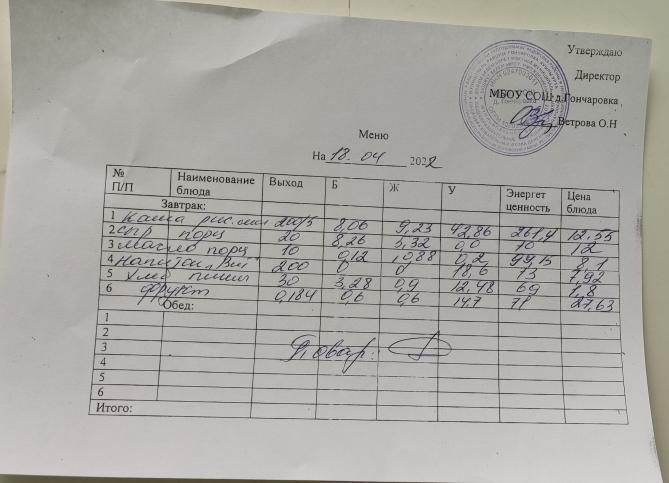 Утверждаю
Директор
МБОУ СОШ д.Гончаровка
Ветрова О.Н
Меню
На 18.04 2022
№ П/П Наименование блюда Выход Б Ж У Энергет ценность Цена блюда
Завтрак:
1 Каша рис. 200/5 8,06 9,23 42,86 261,4 12,55
2 сыр порц 20 8,26 5,32 0,0 70 12
3 масло порц 10 0,12 0,2 99,15 8,1
4 Напиток 200 0 0 18,6 73 1,92
5 Хлеб пшен 30 3,28 0,9 12,48 69 1,8
6 фрукт 0,184 0,6 0,6 14,7 71 27,63
Обед:
1
2
3 Повар:
4
5
6
Итого: